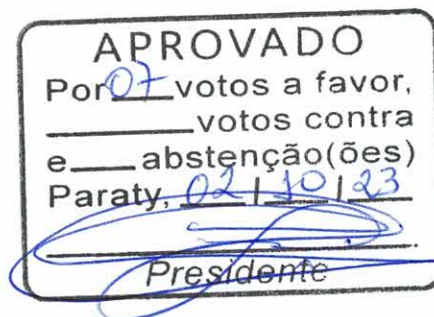 APROVADO
Por 07 votos a favor,
______ votos contra
e___ abstenção(ões)
Paraty, 02 / 10 / 23
Presidente